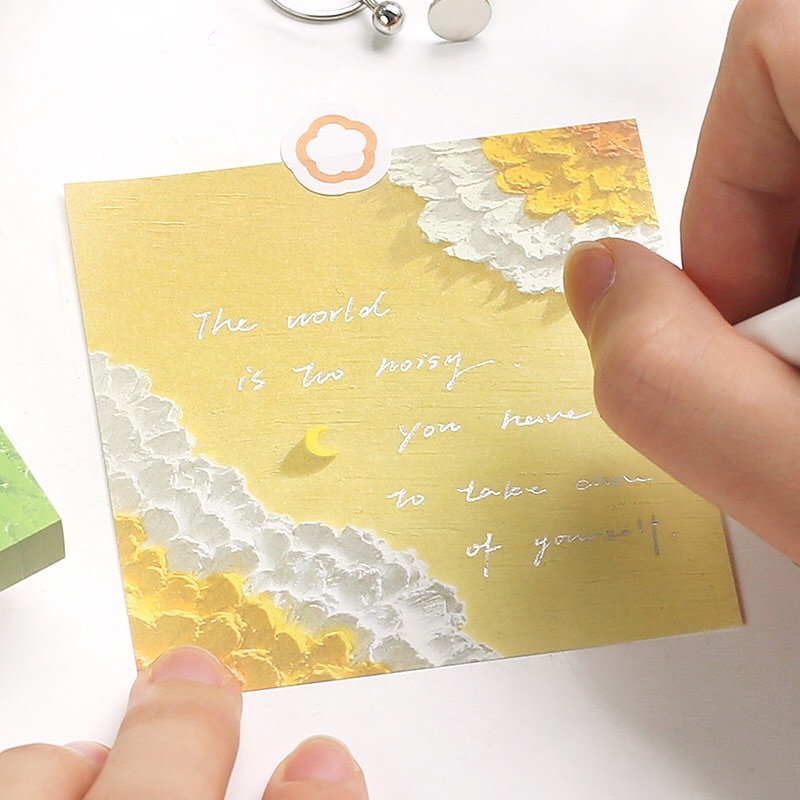 The world
is too noisy.
you have
to take care
of yourself.